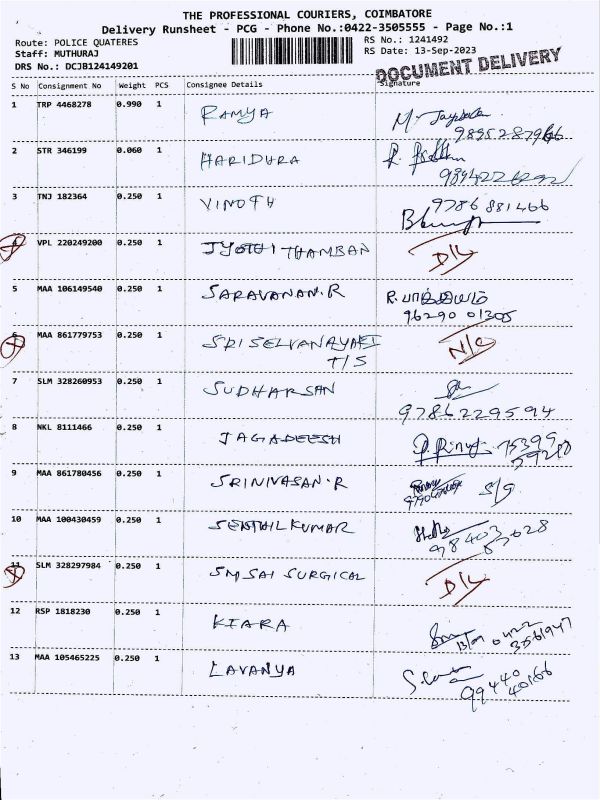 THE PROFESSIONAL COURIERS, COIMBATORE
Delivery Runsheet - PCG - Phone No.:0422-3505555 - Page No.:1
Route: POLICE QUATERES
RS No.: 1241492
Staff: MUTHURAJ
RS Date: 13-Sep-2023
DRS No.: DCJB124149201
DOCUMENT DELIVERY
S No Consignment No Weight PCS Consignee Details Signature
1 TRP 4468278 0.990 1 RAMYA
2 STR 346199 0.060 1 HARIDHRA
3 TNJ 182364 0.250 1 VINOTH 9786 881466
4 VPL 220249200 0.250 1 JYOTHI THAMBAN D/L
5 MAA 106149540 0.250 1 SARAVANAN.R
96290 01305
6 MAA 861779753 0.250 1 SRI SELVANAYAKI N/C
T/S
7 SLM 328260953 0.250 1 SUDHARSAN
9786229594
8 NKL 8111466 0.250 1 JAGADEESH 75399
9 MAA 861780456 0.250 1 SRINIVASAN.R S/G
10 MAA 100430459 0.250 1 SENTHIL KUMAR
11 SLM 328297984 0.250 1 SM SAI SURGICAL D/L
12 RSP 1818230 0.250 1 KIARA 0422
3561947
13 MAA 105465225 0.250 1 LAVANYA
99440
40166